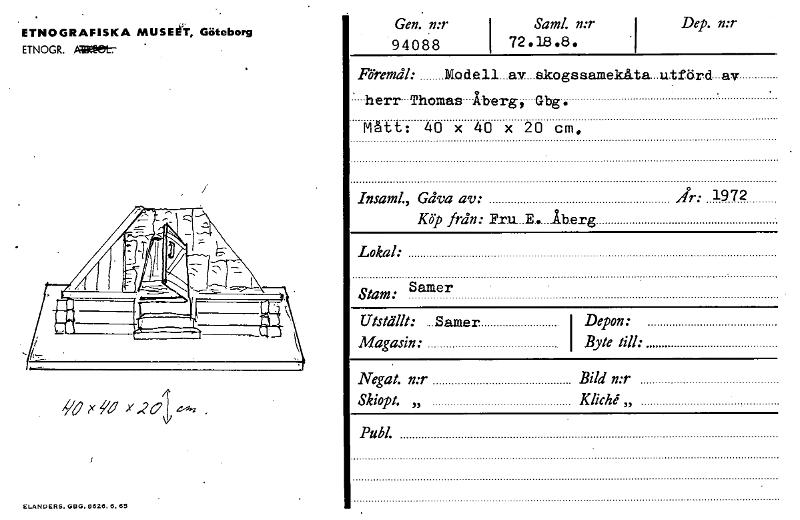 ETNOGRAFISKA MUSEET, Göteborg
ETNOGR. ARKEOL.
40 x 40 x 20 cm.
ELANDERS, GBG. 8626. 6. 65
Gen. n:r Saml. n:r Dep. n:r
94088 72.18.8.
Föremål: Modell av skogssamekåta utförd av
herr Thomas Åberg, Gbg.
Mått: 40 x 40 x 20 cm.
Insaml., Gåva av: År: 1972
Köp från: Fru E. Åberg
Lokal:
Stam: Samer
Utställt: Samer Depon:
Magasin: Byte till:
Negat. n:r Bild n:r
Skiopt. „ Kliché „
Publ.